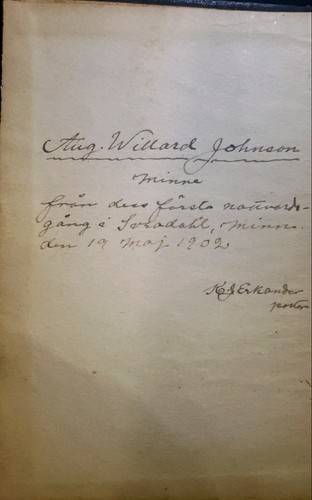 Aug. Willard Johnson
Minne
från dess första nattvards-
gång i Sveadahl, Minn.
den 19 Maj 1902
K. J. Erkander
pastor